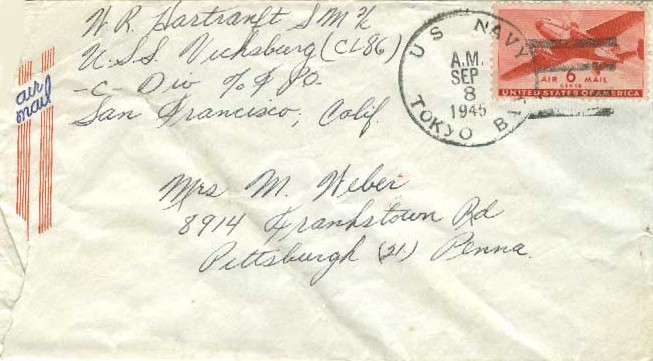 W. R. Hartranft SM 2/c
U.S.S. Vicksburg (CL86)
-C- Div % F PO.
San Francisco, Calif.
air mail
US NAVY
A.M.
SEP
8
1945
TOKYO BAY
AIR 6 MAIL
CENTS
UNITED STATES OF AMERICA
Mrs M. Weber
8914 Frankstown Rd
Pittsburgh (21) Penna.